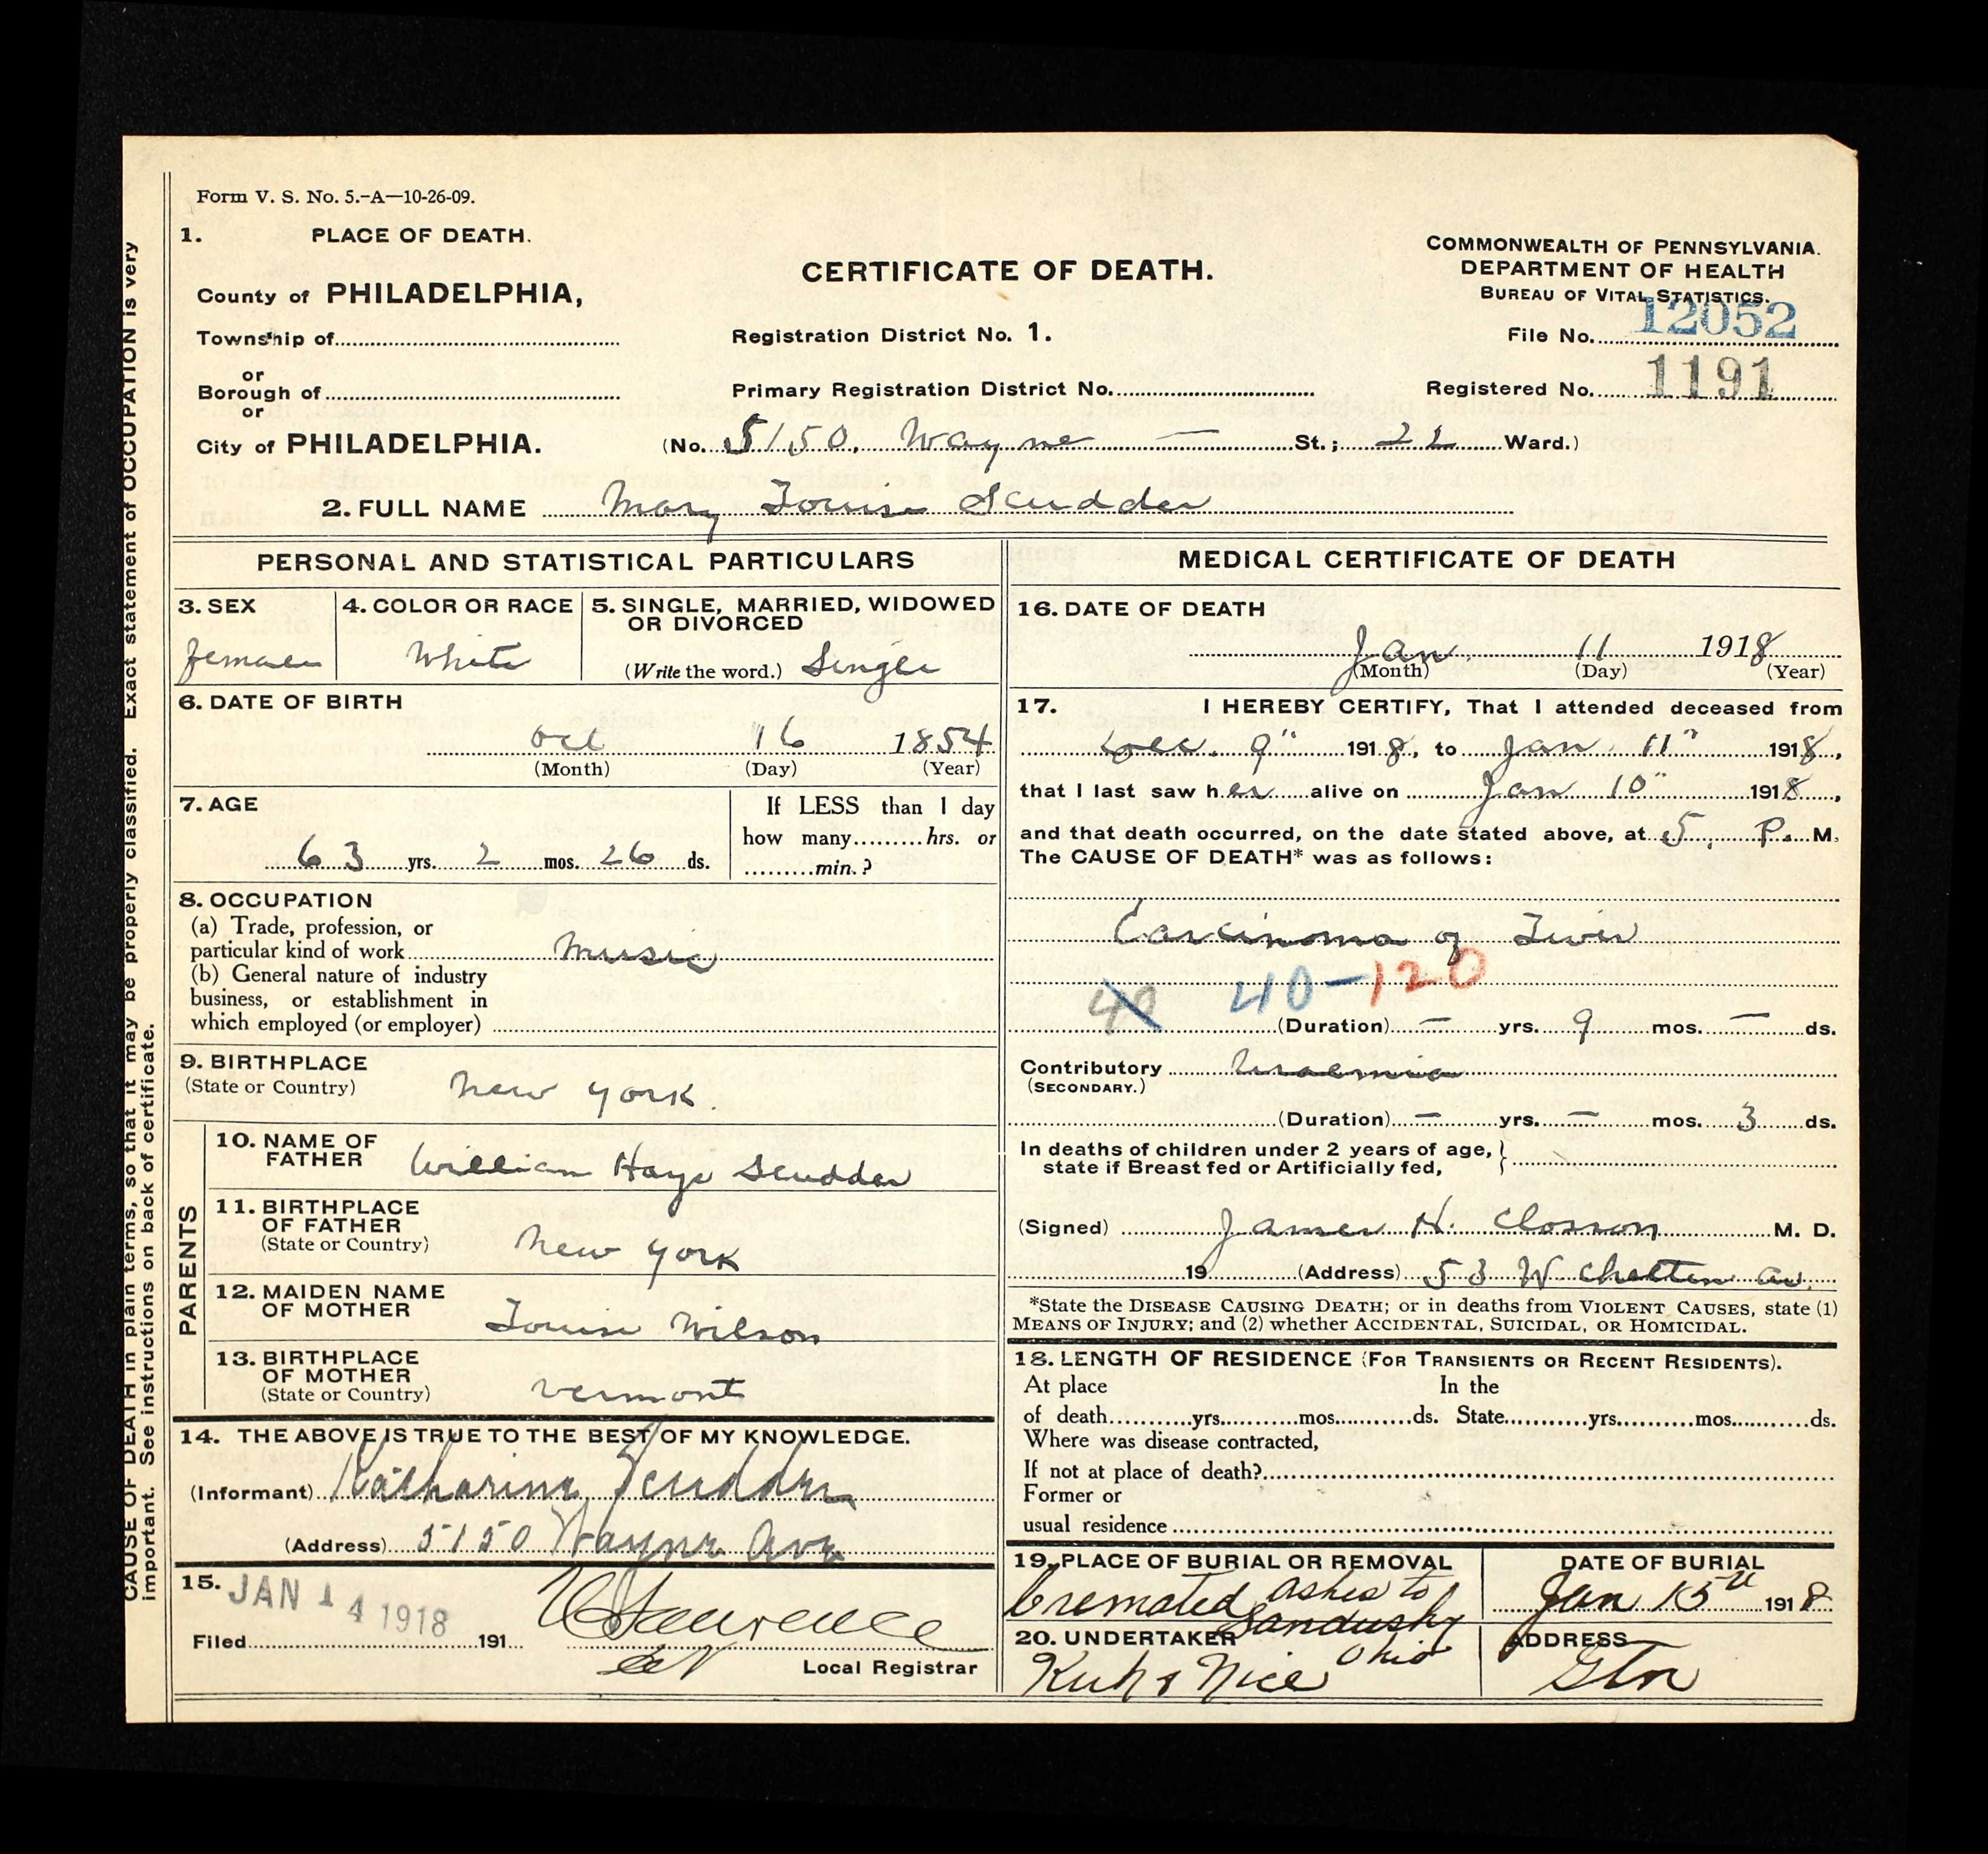 Form V. S. No. 5.-A—10-26-09.
1. PLACE OF DEATH.
County of PHILADELPHIA,
Township of
or
Borough of
or
City of PHILADELPHIA.
CERTIFICATE OF DEATH.
Registration District No. 1.
Primary Registration District No.
(No. 5150, Wayne — St.; 22 Ward.)
COMMONWEALTH OF PENNSYLVANIA.
DEPARTMENT OF HEALTH
BUREAU OF VITAL STATISTICS.
File No. 12052
Registered No. 1191
2. FULL NAME Mary Louise Scudder
PERSONAL AND STATISTICAL PARTICULARS
3. SEX
Female
4. COLOR OR RACE
White
5. SINGLE, MARRIED, WIDOWED
OR DIVORCED
(Write the word.) Single
6. DATE OF BIRTH
Oct 16 1854
(Month) (Day) (Year)
7. AGE
63 yrs. 2 mos. 26 ds.
If LESS than 1 day
how many.........hrs. or
.........min.?
8. OCCUPATION
(a) Trade, profession, or
particular kind of work Music
(b) General nature of industry
business, or establishment in
which employed (or employer)
9. BIRTHPLACE
(State or Country) New York.
PARENTS
10. NAME OF
FATHER William Hays Scudder
11. BIRTHPLACE
OF FATHER
(State or Country) New York
12. MAIDEN NAME
OF MOTHER Louise Wilson
13. BIRTHPLACE
OF MOTHER
(State or Country) Vermont
14. THE ABOVE IS TRUE TO THE BEST OF MY KNOWLEDGE.
(Informant) Katharine Scudder
(Address) 5150 Wayne Ave
15. JAN 14 1918
Filed 191
Local Registrar
MEDICAL CERTIFICATE OF DEATH
16. DATE OF DEATH
Jan. 11 1918
(Month) (Day) (Year)
17. I HEREBY CERTIFY, That I attended deceased from
Dec. 9" 1918, to Jan 11" 1918,
that I last saw her alive on Jan 10" 1918,
and that death occurred, on the date stated above, at 5, P. M.
The CAUSE OF DEATH* was as follows:
Carcinoma of Liver
40 40-120
(Duration) — yrs. 9 mos. — ds.
Contributory Uraemia
(SECONDARY.)
(Duration) — yrs. — mos. 3 ds.
In deaths of children under 2 years of age,
state if Breast fed or Artificially fed,
(Signed) James H. Closson M. D.
19 (Address) 53 W Chelten Av.
*State the DISEASE CAUSING DEATH; or in deaths from VIOLENT CAUSES, state (1)
MEANS OF INJURY; and (2) whether ACCIDENTAL, SUICIDAL, OR HOMICIDAL.
18. LENGTH OF RESIDENCE (FOR TRANSIENTS OR RECENT RESIDENTS).
At place In the
of death yrs. mos. ds. State yrs. mos. ds.
Where was disease contracted,
If not at place of death?
Former or
usual residence
19. PLACE OF BURIAL OR REMOVAL
Cremated Ashes to
Sandusky
Ohio
DATE OF BURIAL
Jan 15th 1918
20. UNDERTAKER
Kuhs Nice
ADDRESS
Gtn
CAUSE OF DEATH in plain terms, so that it may be properly classified. Exact statement of OCCUPATION is very
important. See instructions on back of certificate.